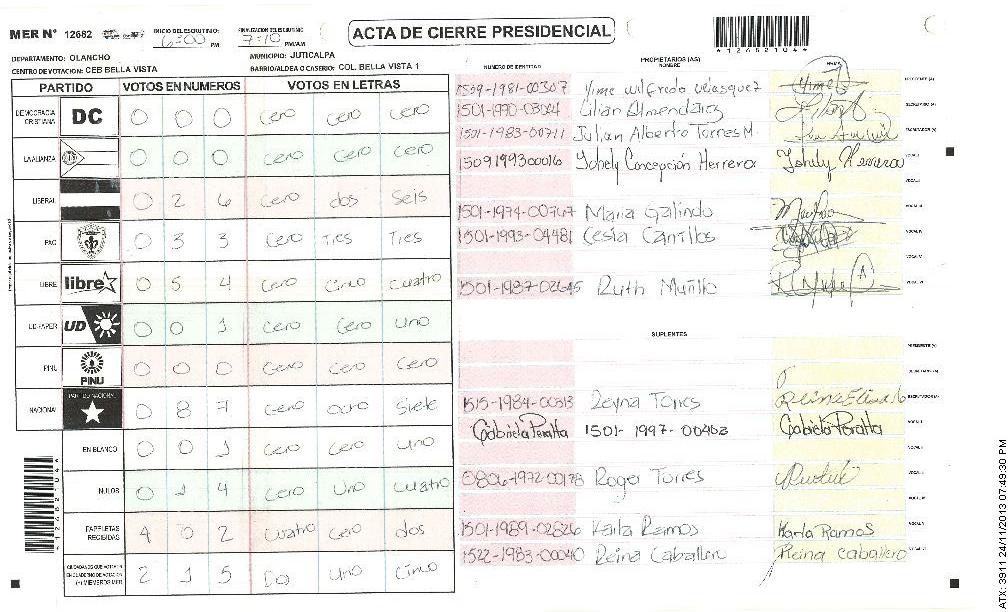 MER N° 12682
INICIO DEL ESCRUTINIO: 6:00 PM
FINALIZACION DEL ESCRUTINIO: 7:10 PM/AM
ACTA DE CIERRE PRESIDENCIAL
DEPARTAMENTO: OLANCHO
MUNICIPIO: JUTICALPA
CENTRO DE VOTACION: CEB BELLA VISTA
BARRIO/ALDEA O CASERIO: COL. BELLA VISTA 1
PARTIDO VOTOS EN NUMEROS VOTOS EN LETRAS
DEMOCRACIA CRISTIANA DC 0 0 0 Cero Cero Cero
LA ALIANZA 0 0 0 Cero Cero Cero
LIBERAL 0 2 6 Cero dos Seis
PAC 0 3 3 Cero Tres Tres
LIBRE libre 0 5 4 Cero Cinco Cuatro
UD-FAPER UD 0 0 1 Cero Cero Uno
PINU PINU 0 0 0 Cero Cero Cero
NACIONAL PARTIDO NACIONAL 0 8 7 Cero Ocho Siete
EN BLANCO 0 0 1 Cero Cero Uno
NULOS 0 1 4 Cero Uno Cuatro
PAPELETAS RECIBIDAS 4 0 2 Cuatro Cero dos
CIUDADANOS QUE VOTARON EN CUADERNO DE VOTACION (+) MIEMBROS MER 2 1 5 Do Uno Cinco
PROPIETARIOS (AS)
NUMERO DE IDENTIDAD NOMBRE FIRMA
1509-1981-00307 Yime Wilfredo Velasquez PRESIDENTE (A)
1501-1990-03004 Lilian Almendarez SECRETARIO (A)
1501-1983-00711 Julian Alberto Torres M. ESCRUTADOR (A)
1509199300016 Johely Concepción Herrera Johely Herrera VOCAL I
VOCAL II
1501-1974-00767 Maria Galindo VOCAL III
1501-1993-04481 Cesia Carrillos VOCAL IV
VOCAL V
1501-1987-02645 Ruth Murillo VOCAL VI
SUPLENTES
PRESIDENTE (A)
SECRETARIO (A)
1515-1984-00313 Reyna Torres ESCRUTADOR (A)
Gabriela Peralta 1501-1997-00403 Gabriela Peralta VOCAL I
0806-1972-00178 Roger Torres
1501-1989-02826 Karla Ramos Karla Ramos VOCAL V
1522-1983-00040 Reina Caballero Reina Caballero VOCAL VI
ATX: 3911 24/11/2013 07:49:30 PM